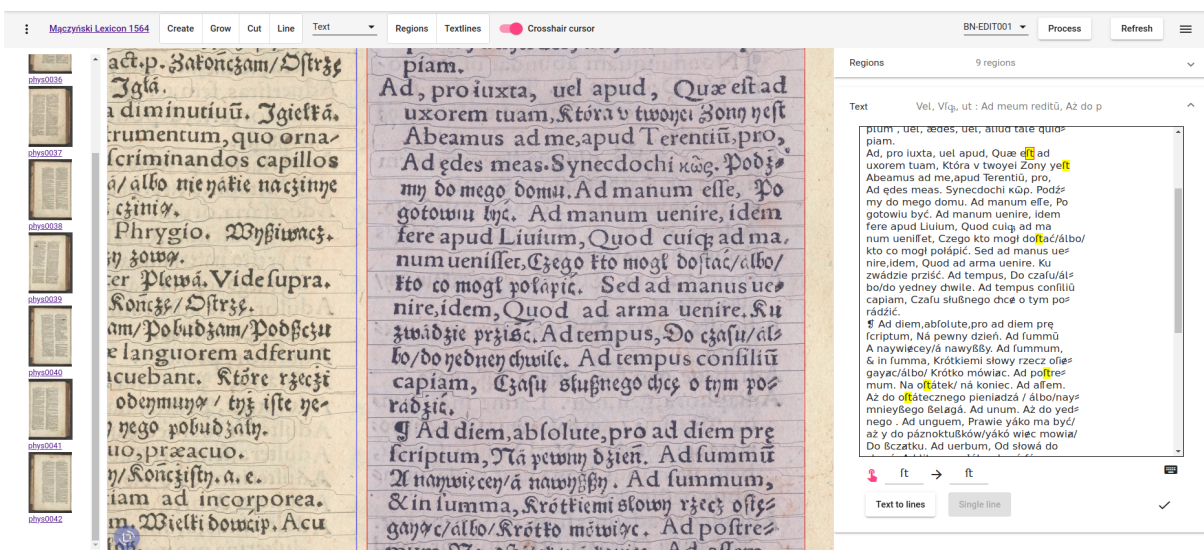 Mączyński Lexicon 1564
Create
Grow
Cut
Line
Text
Regions
Textlines
Crosshair cursor
BN-EDIT001
Process
Refresh
phys0036
phys0037
phys0038
phys0039
phys0040
phys0041
phys0042
act.p. Zákończam/Oſtrzę
Jgłá.
a diminutiuū. Jgiełká.
trumentum, quo orna⸗
ſcriminandos capillos
á/ álbo nieyákie naczinye
czinią.
Phrygio. Wyßiwacz.
zową.
er Plewá. Videſupra.
Kończę/ Oſtrzę.
am/Pobudzam/Podßczu
e languorem adferunt
acuebant. Które rzeczi
odeymuyą / tyż iſte ye⸗
yego pobudzáły.
uo,præacuo.
y/ Kończiſty. a. e.
iam ad incorporea.
m. Wielki dowcip. Acu
piam.
Ad, pro iuxta, uel apud, Quæ eſt ad
uxorem tuam, Która v twoyei Zony yeſt
Abeamus ad me,apud Terentiū,pro,
Ad ędes meas. Synecdochi κῶς. Podź⸗
my do mego domu. Ad manum eſſe, Po
gotowiu być. Ad manum uenire, idem
fere apud Liuium, Quod cuiqꝫ ad ma,
num ueniſſet, Czego kto mogł doſtáć/álbo/
kto co mogł połápić. Sed ad manus ue⸗
nire,idem, Quod ad arma uenire. Ku
zwádzie prziść. Ad tempus, Do czáſu/ál⸗
bo/do yedney chwile. Ad tempus conſiliū
capiam, Czáſu słußnego chcę o tym po⸗
rádzić.
¶ Ad diem,abſolute,pro ad diem prę
ſcriptum, Ná pewny dzień. Ad ſummū
A naywięcey/á nawyßßy. Ad ſummum,
& in ſumma, Krótkiemi słowy rzecz oſię⸗
gayąc/álbo/ Krótko mówiąc. Ad poſtre⸗
Regions 9 regions
Text Vel, Vſqꝫ, ut : Ad meum reditū, Aż do p
pium , uel, ædes, uel, aliud tale quid⸗
piam.
Ad, pro iuxta, uel apud, Quæ eſt ad
uxorem tuam, Która v twoyei Zony yeſt
Abeamus ad me,apud Terentiū, pro,
Ad ędes meas. Synecdochi κῶρ. Podź⸗
my do mego domu. Ad manum eſſe, Po
gotowiu być. Ad manum uenire, idem
fere apud Liuium, Quod cuiqꝫ ad ma
num ueniſſet, Czego kto mogł doſtać/álbo/
kto co mogł połápić. Sed ad manus ue⸗
nire,idem, Quod ad arma uenire. Ku
zwádzie prziść. Ad tempus, Do czaſu/ál⸗
bo/do yedney dwile. Ad tempus conſiliū
capiam, Czaſu słußnego dhcę o tym po⸗
rádzić.
¶ Ad diem,abſolute,pro ad diem prę
ſcriptum, Ná pewny dzień. Ad ſummū
A naywięcey/á nawyßßy. Ad ſummum,
& in ſumma, Krótkiemi słowy rzecz oſię⸗
gayąc/álbo/ Krótko mówiąc. Ad poſtre⸗
mum. Na oſtátek/ ná koniec. Ad aſſem.
Aż do oſtátecznego pieniądzá / álbo/nay⸗
mnieyßego ßelągá. Ad unum. Aż do yed⸗
nego . Ad unguem, Prawie yáko ma być/
aż y do páznoktußków/yákó więc mowią/
Do ßczątku. Ad uerbum, Od słowá do
ſt → ſt
Text to lines
Single line